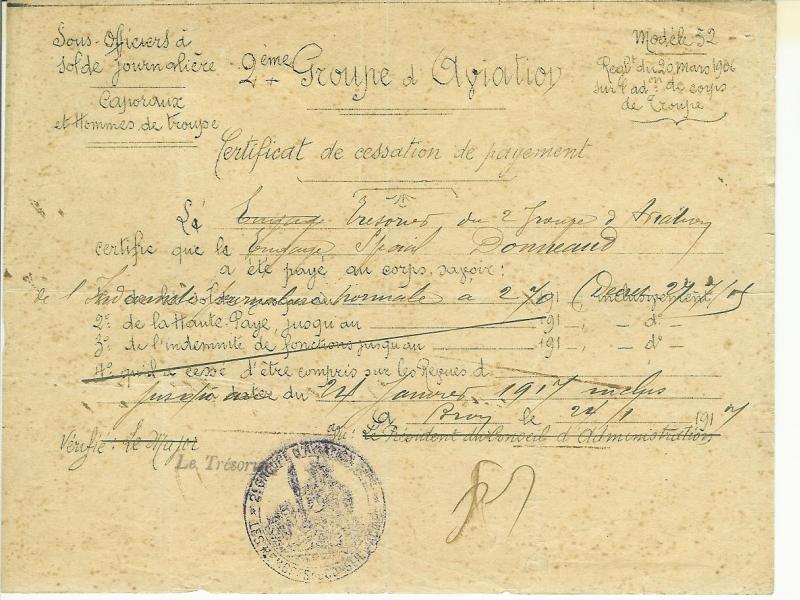 Sous-Officiers à
solde journalière
Caporaux
et Hommes de troupe
2ème Groupe d'Aviation
Modèle 52
Reglt du 20 mars 1906
sur l'adon de corps
de Troupe
Certificat de cessation de payement
Le Engagé Trésorier du 2 Groupe d Aviation
certifie que le Engagé Spécial Donneaud
a été payé au corps, savoir:
de l'Ind journalière normale à 2,70 191 inclusivement,
2º de la Haute-Paye, jusqu'au 191 , - dº -
3º de l'indemnité de fonctions jusqu'au 191 , - dº -
4º qu'il a cessé d'être compris sur les Revues d
jusqu'au dater du 24 Janvier 1917 inclus
A Bron le 24/1 1917
Vérifié: Le Major
Le Président du Conseil d'Administration
Le Trésorier
2e GROUPE D'AVIATION